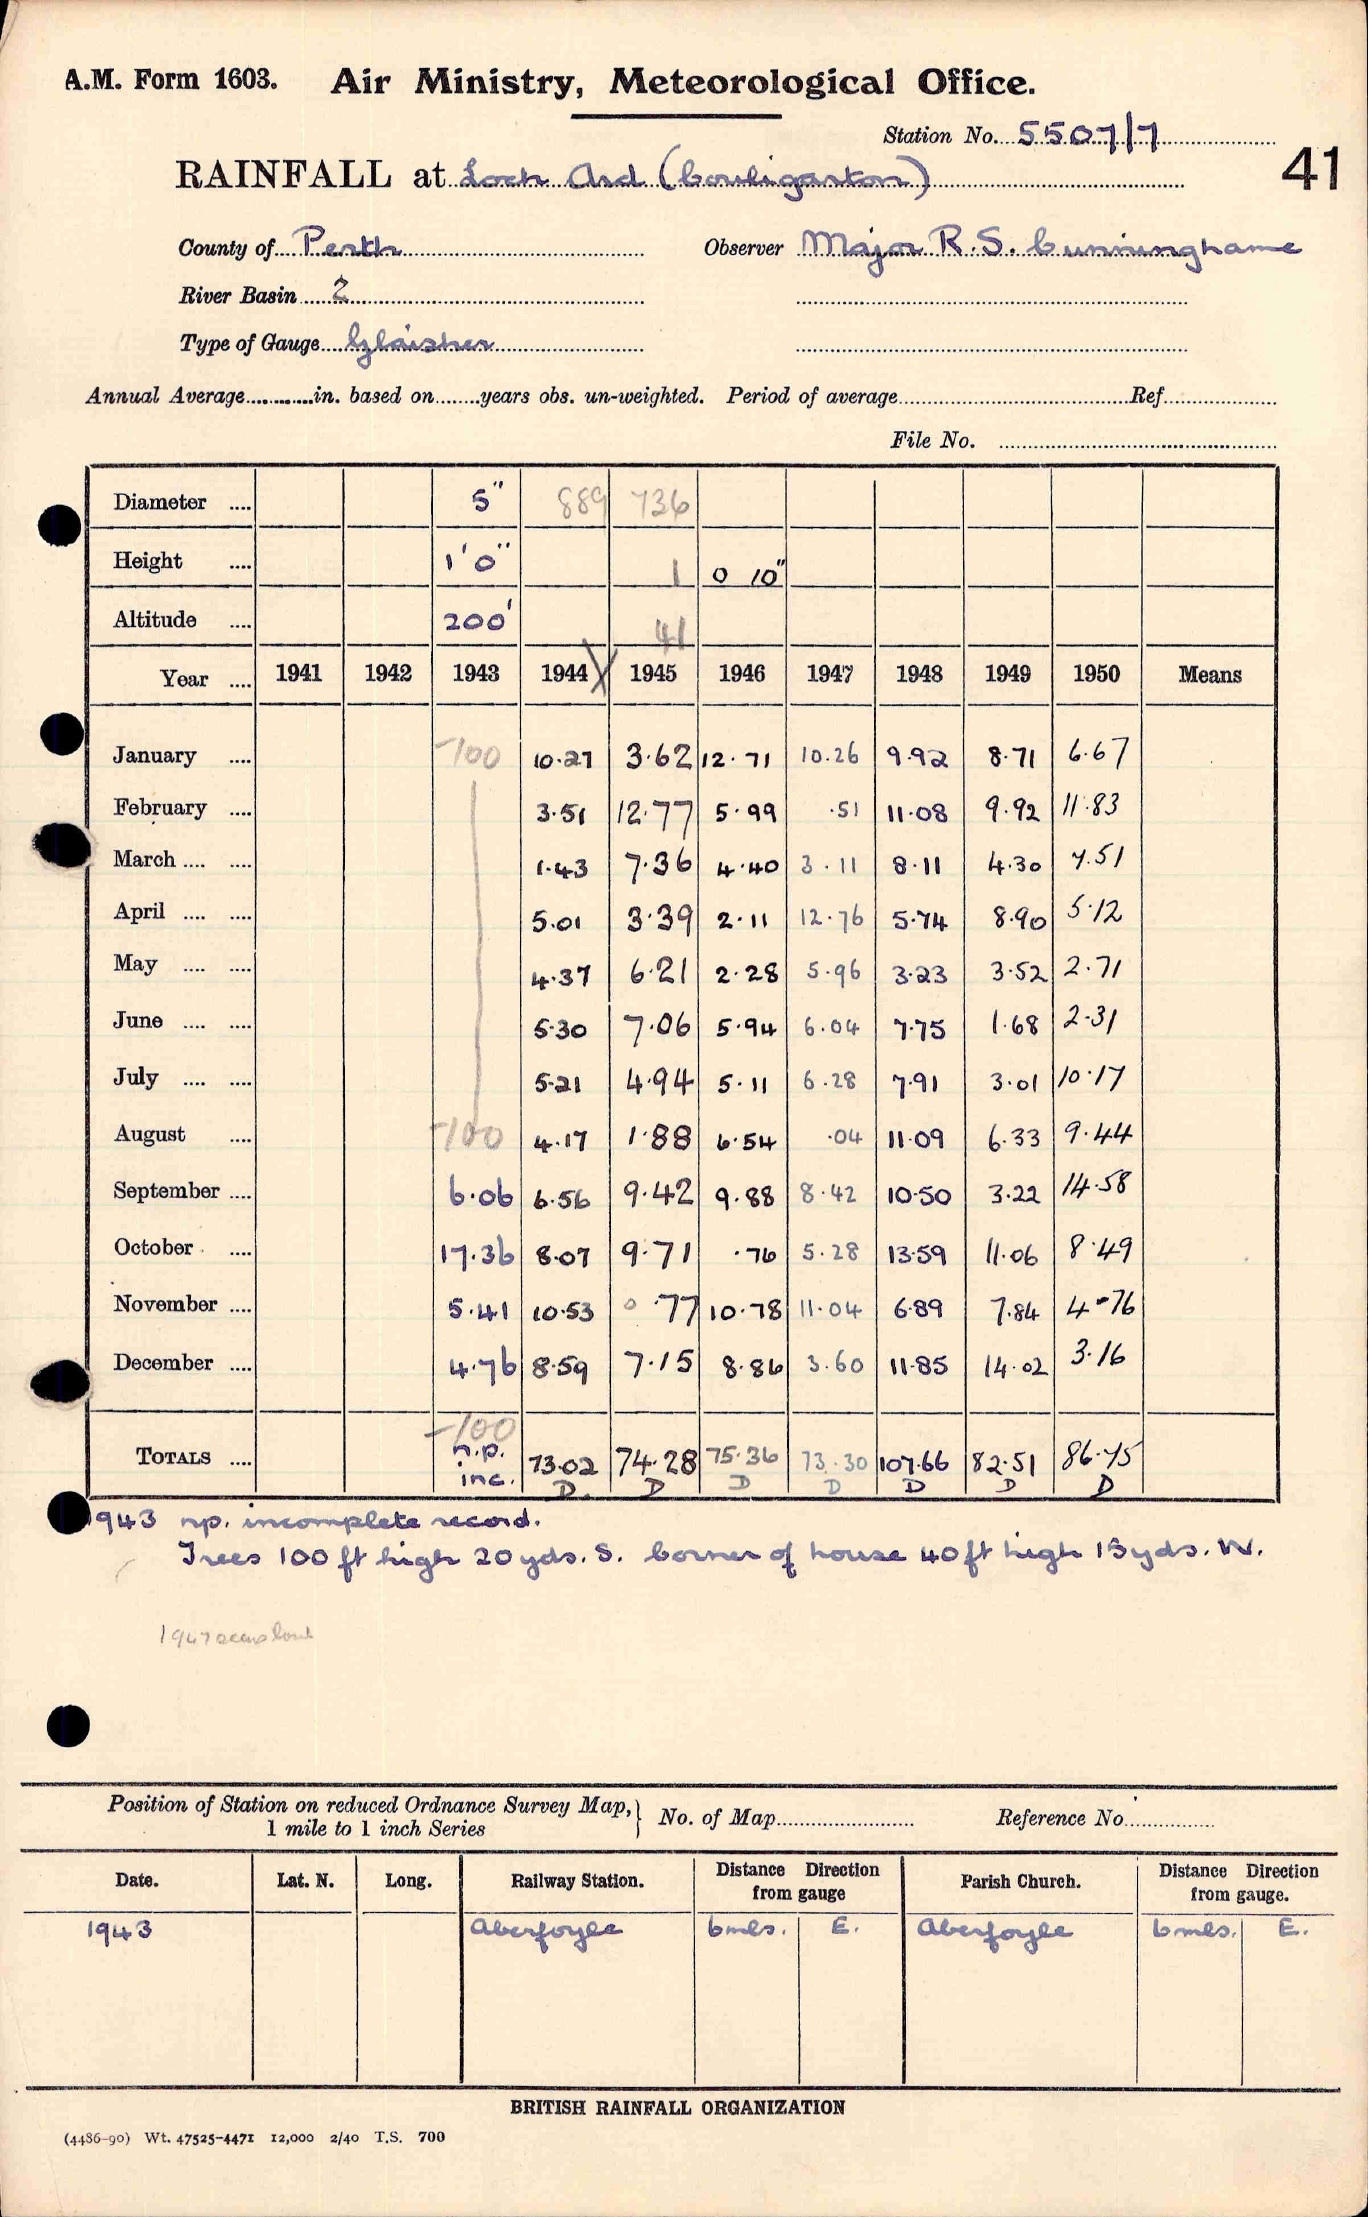 A.M. Form 1603. Air Ministry, Meteorological Office.
Station No. 5507/7
41
RAINFALL at Loch Ard (Couligarton)
County of Perth Observer Major R.S. Cunninghame
River Basin 2
Type of Gauge Glaisher
Annual Average............in. based on........years obs. un-weighted. Period of average........Ref........
File No. ........
Diameter .... 5" 889 736
Height .... 1'0" 1 0 10"
Altitude .... 200' 41
Year .... 1941 1942 1943 1944 1945 1946 1947 1948 1949 1950 Means
January .... -100 10.27 3.62 12.71 10.26 9.92 8.71 6.67
February .... 3.51 12.77 5.99 .51 11.08 9.92 11.83
March .... .... 1.43 7.36 4.40 3.11 8.11 4.30 7.51
April .... .... 5.01 3.39 2.11 12.76 5.74 8.90 5.12
May .... .... 4.37 6.21 2.28 5.96 3.23 3.52 2.71
June .... .... 5.30 7.06 5.94 6.04 7.75 1.68 2.31
July .... .... 5.21 4.94 5.11 6.28 7.91 3.01 10.17
August .... -100 4.17 1.88 6.54 .04 11.09 6.33 9.44
September .... 6.06 6.56 9.42 9.88 8.42 10.50 3.22 14.58
October .... 17.36 8.07 9.71 .76 5.28 13.59 11.06 8.49
November .... 5.41 10.53 0.77 10.78 11.04 6.89 7.84 4.76
December .... 4.76 8.59 7.15 8.86 3.60 11.85 14.02 3.16
-100
TOTALS .... n.p. inc. 73.02 74.28 75.36 73.30 107.66 82.51 86.75
D. D D D D D D
943 np. incomplete record.
Trees 100 ft high 20 yds. S. Corner of house 40 ft high 15 yds. W.
1947
Position of Station on reduced Ordnance Survey Map, 1 mile to 1 inch Series } No. of Map........ Reference No........
Date. Lat. N. Long. Railway Station. Distance Direction from gauge Parish Church. Distance Direction from gauge.
1943 Aberfoyle 6 mls. E. Aberfoyle 6 mls. E.
BRITISH RAINFALL ORGANIZATION
(4486-90) Wt. 47525-4471 12,000 2/40 T.S. 700